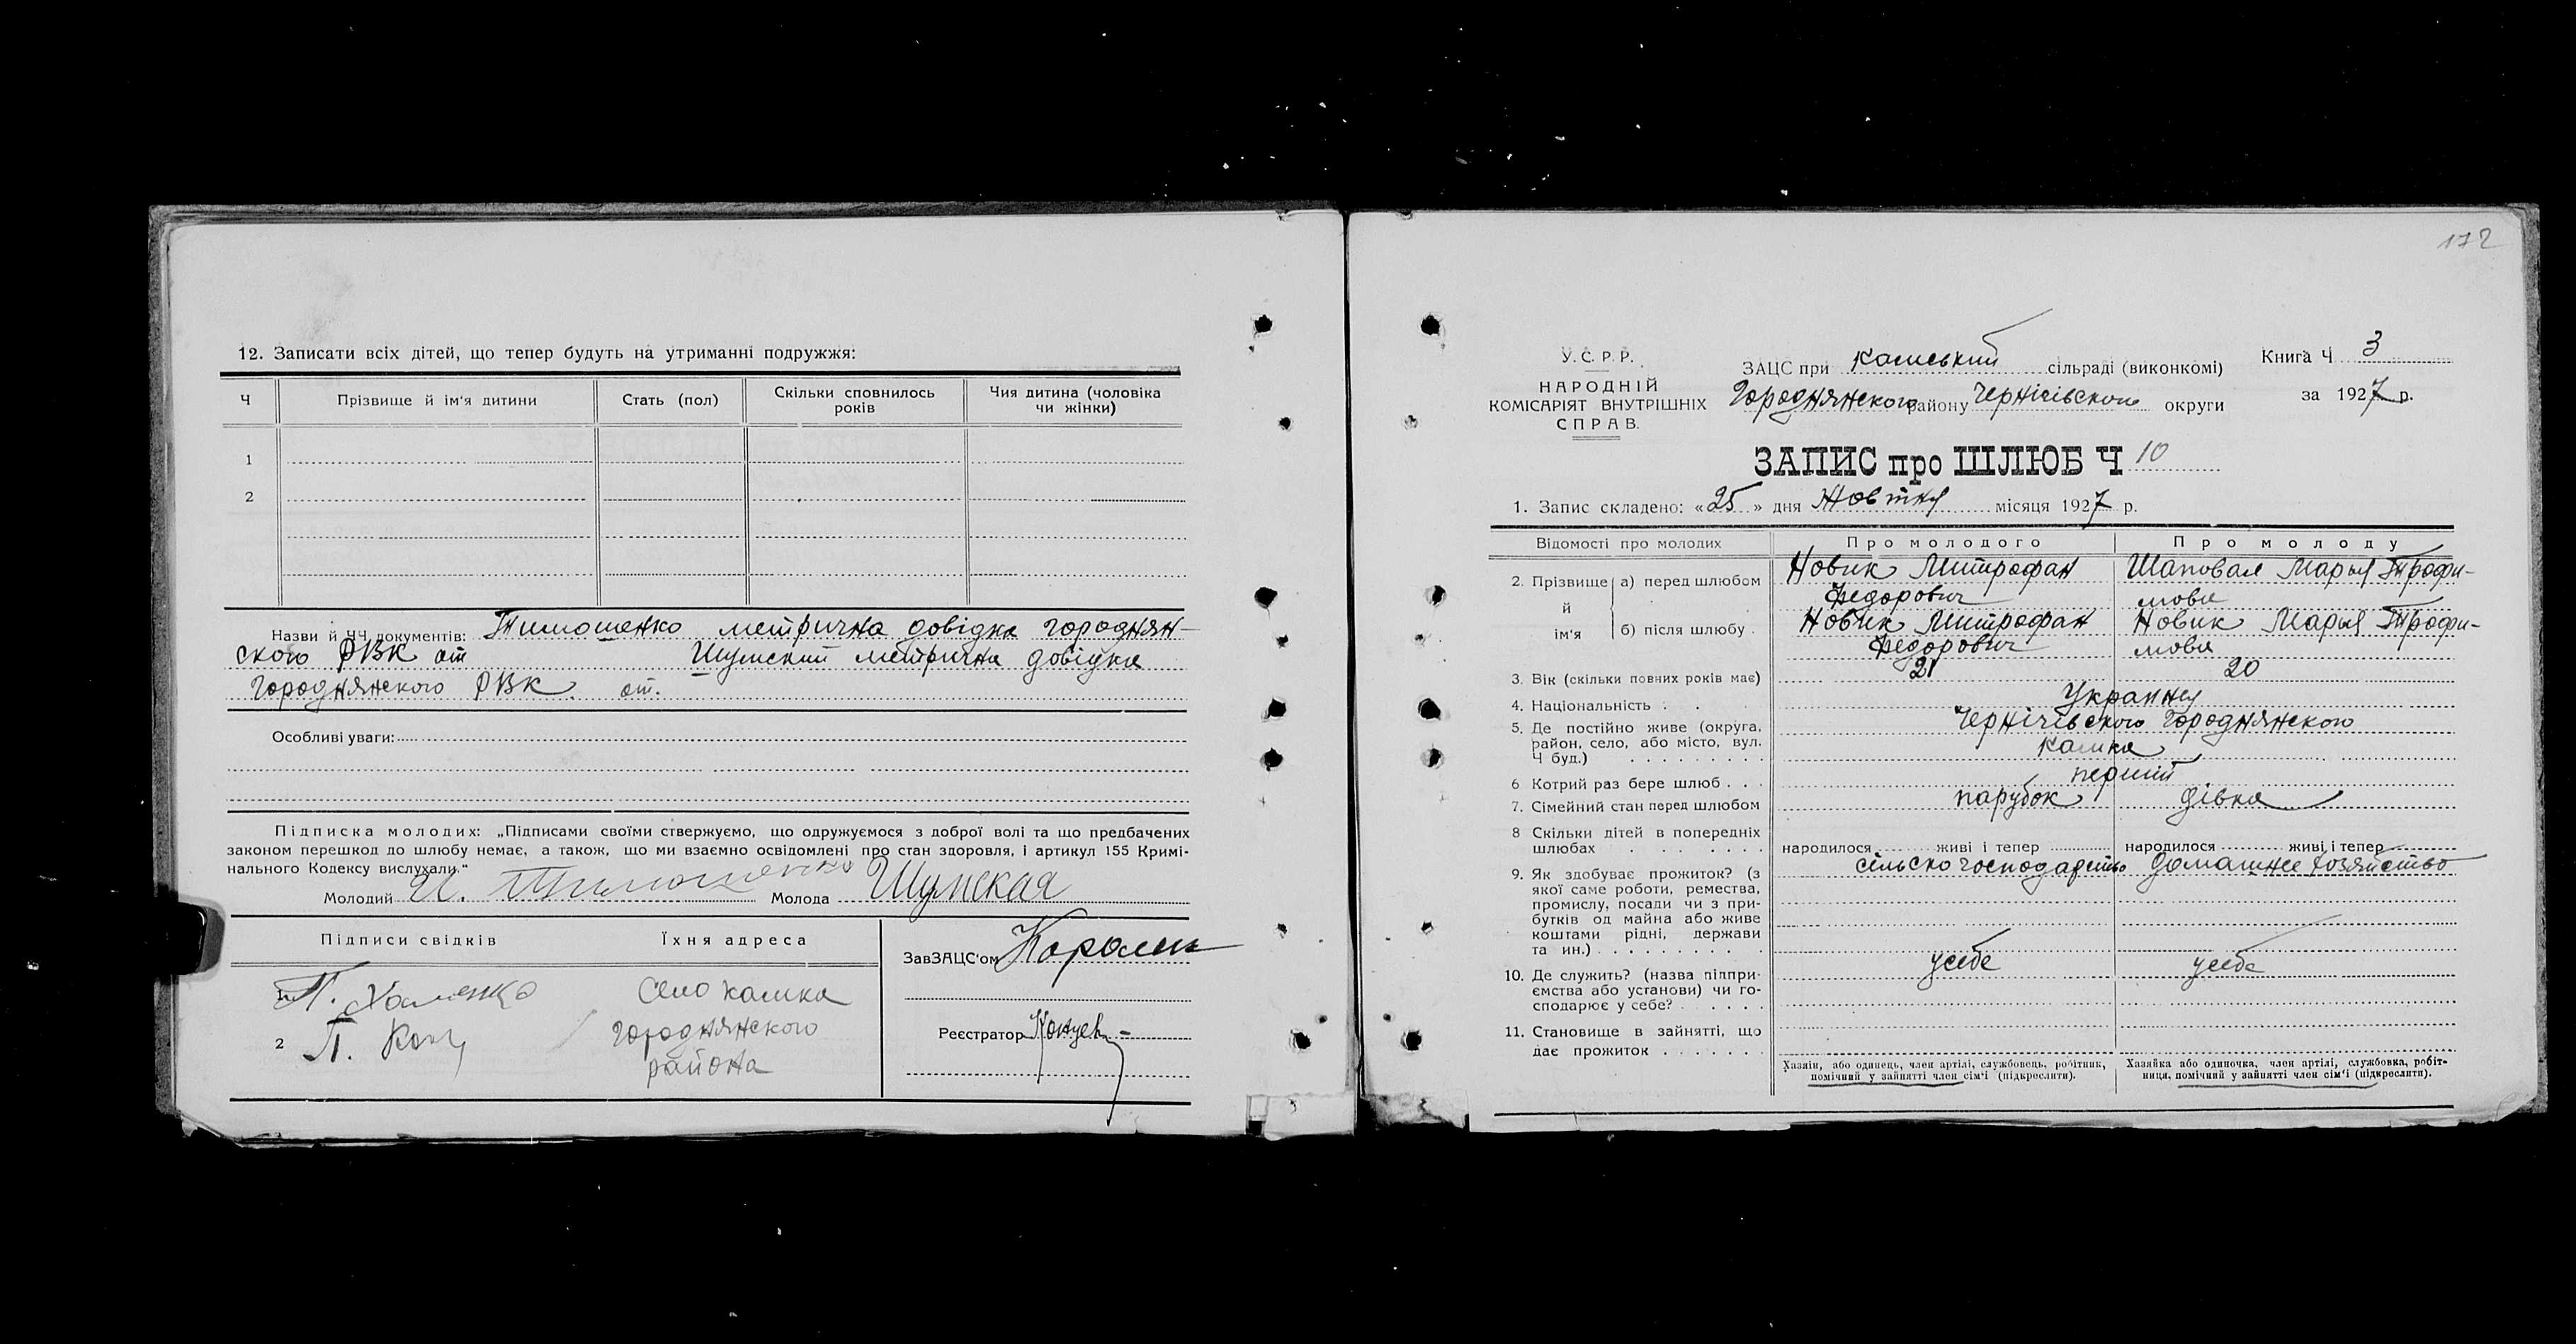 12. Записати всіх дітей, що тепер будуть на утриманні подружжя:
Ч Прізвище й ім'я дитини Стать (пол) Скільки сповнилось років Чия дитина (чоловіка чи жінки)
1
2
Назви й ЧЧ документів: Тимошенко метрична довідка городнян-
ского РВК от Шумский метрична довідка
городнянского РВК от.
Особливі уваги:
Підписка молодих: „Підписами своїми стверджуємо, що одружуємося з доброї волі та що предбачених
законом перешкод до шлюбу немає, а також, що ми взаємно освідомлені про стан здоровля, і артикул 155 Кримі-
нального Кодексу вислухали."
Молодий И. Тимошенко Молода Шумская
Підписи свідків Їхня адреса
ЗавЗАЦС'ом
1 П. Хоменко Село камка
2 П. городнянского
района
Реєстратор
172
У.С.Р.Р.
НАРОДНІЙ
КОМІСАРІЯТ ВНУТРІШНІХ
СПРАВ.
ЗАЦС при сільраді (виконкомі)
Городнянского району Чернігівского округи
Книга Ч 3
за 1927 р.
ЗАПИС про ШЛЮБ Ч 10
1. Запис складено: «25» дня Жовтня місяця 1927 р.
Відомості про молодих Про молодого Про молоду
2. Прізвище й ім'я а) перед шлюбом Новик Митрофан Шаповал Марья Трофи-
Федорович мова
б) після шлюбу Новик Митрофан Новик Марья Трофи-
Федорович мова
3. Вік (скільки повних років має) 21 20
4. Національність Украинця
5. Де постійно живе (округа, Чернігівского Городнянского
район, село, або місто, вул. камка
Ч буд.)
6 Котрий раз бере шлюб перший
7. Сімейний стан перед шлюбом парубок дівка
8 Скільки дітей в попередніх
шлюбах народилося живі і тепер народилося живі і тепер
9. Як здобуває прожиток? (з сільско господарство домашнее хозяйство
якої саме роботи, ремества,
промислу, посади чи з при-
бутків од майна або живе
коштами рідні, держави
та ин.)
10. Де служить? (назва підпри- усебе усебе
ємства або установи) чи го-
сподарює у себе?
11. Становище в зайнятті, що
дає прожиток
Хазяїн, або одинець, член артілі, службовець, робітник,
помічний у зайнятті член сім'ї (підкреслити).
Хазяйка або одиночка, член артілі, службовка, робіт-
ниця, помічний у зайнятті член сім'ї (підкреслити).